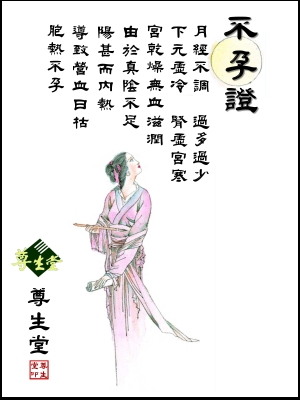 不孕證
月經不調　過多過少
下元虛冷　腎虛宮寒
宮乾燥無血滋潤
由於真陰不足
陽甚而內熱
導致營血日枯
胞熱不孕
尊生堂
尊生堂
尊生堂印